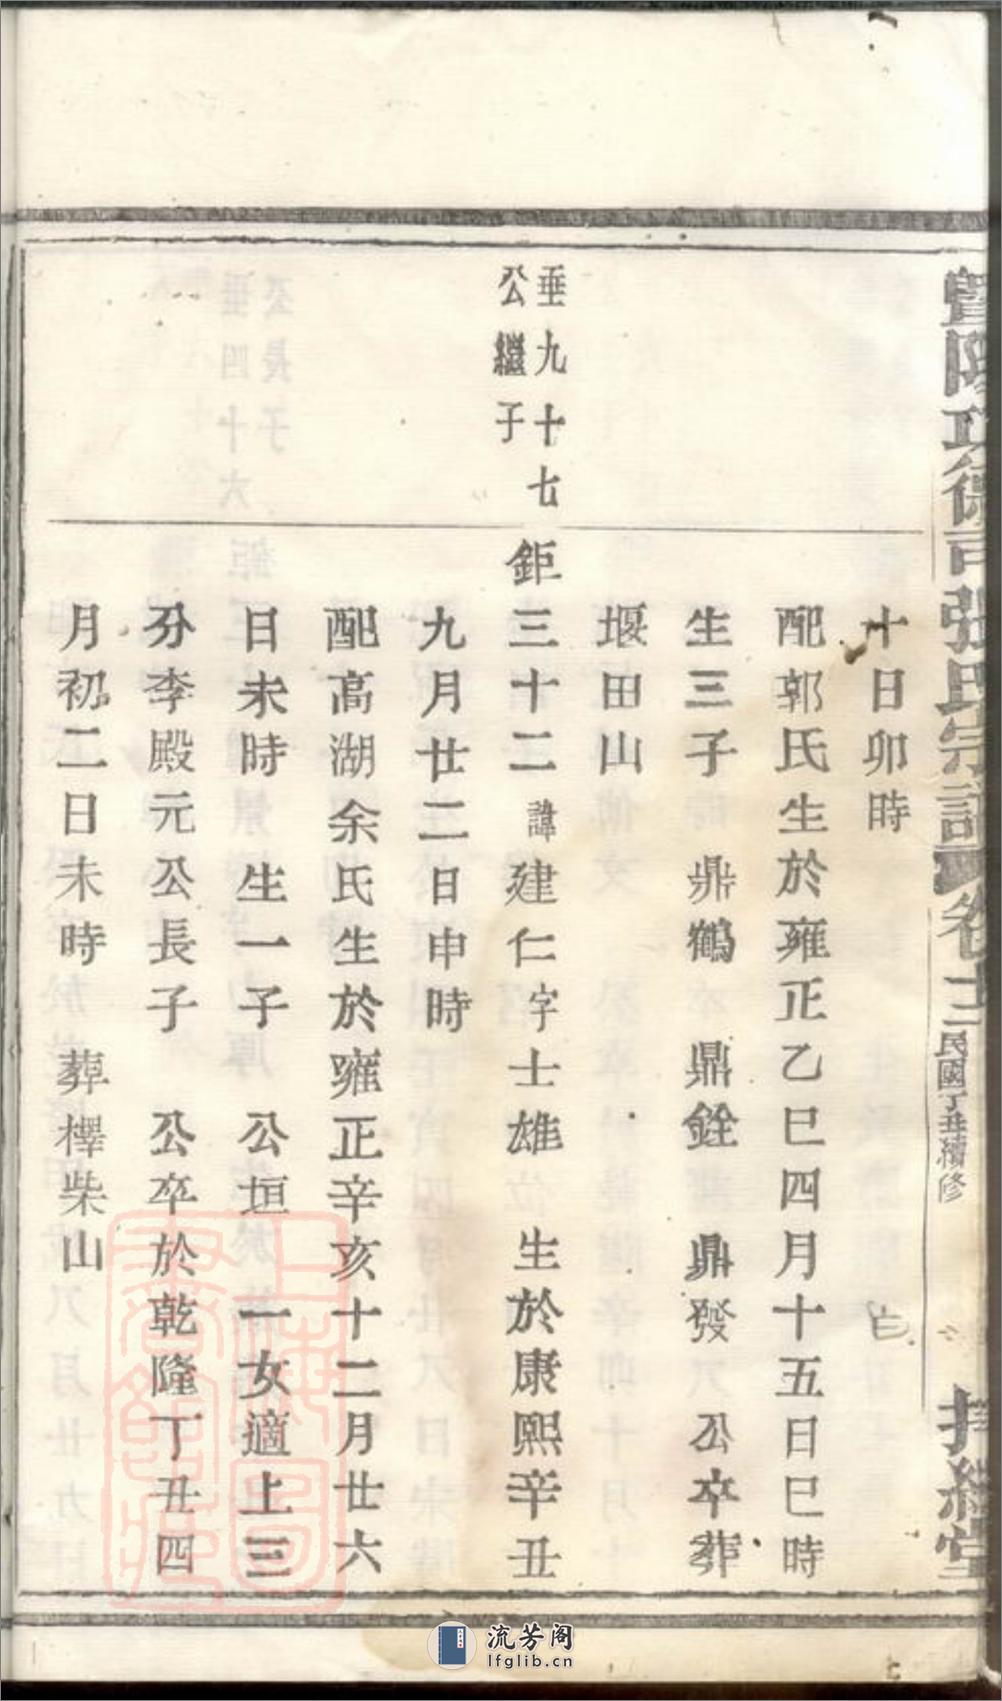 張氏宗譜
卷十二
民國丁丑續修
十日卯時
配郭氏生於雍正乙巳四月十五日巳時
生三子 鼎鶴 鼎銓 鼎發 公卒葬
堰田山
垂九十七
公繼子
鉅三十二諱建仁字士雄 生於康熙辛丑
九月廿二日申時
配高湖余氏生於雍正辛亥十二月廿六
日未時 生一子 公垣 一女適上三
分李殿元公長子 公卒於乾隆丁丑四
月初二日未時 葬檡柴山
流芳阁
lfglib.cn